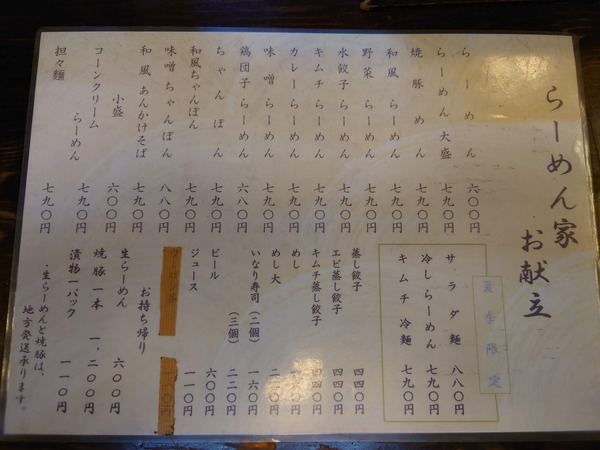 らーめん家
お献立
らーめん 六〇〇円
らーめん大盛 七九〇円
焼豚めん 七九〇円
和風らーめん 七九〇円
野菜らーめん 七九〇円
キムチらーめん 七九〇円
水餃子らーめん 七九〇円
カレーらーめん 七九〇円
味噌らーめん 七九〇円
鶏団子らーめん 六八〇円
ちゃんぽん 七九〇円
和風ちゃんぽん 七九〇円
味噌ちゃんぽん 八八〇円
和風あんかけそば 七九〇円
小盛 六〇〇円
コーンクリーム
らーめん 七九〇円
担々麺 七九〇円
夏季限定
サラダ麺 八八〇円
冷しらーめん 七九〇円
キムチ冷麺 七九〇円
蒸し餃子 四四〇円
エビ蒸し餃子 四四〇円
キムチ蒸し餃子 四四〇円
めし
めし大
いなり寿司(二個) 一六〇円
(三個) 二二〇円
ビール 六〇〇円
ジュース 一一〇円
ウーロン茶 一一〇円
お持ち帰り
生らーめん 六〇〇円
焼豚一本 一、二〇〇円
漬物一パック 一一〇円
・生らーめんと焼豚は、
地方発送承ります。